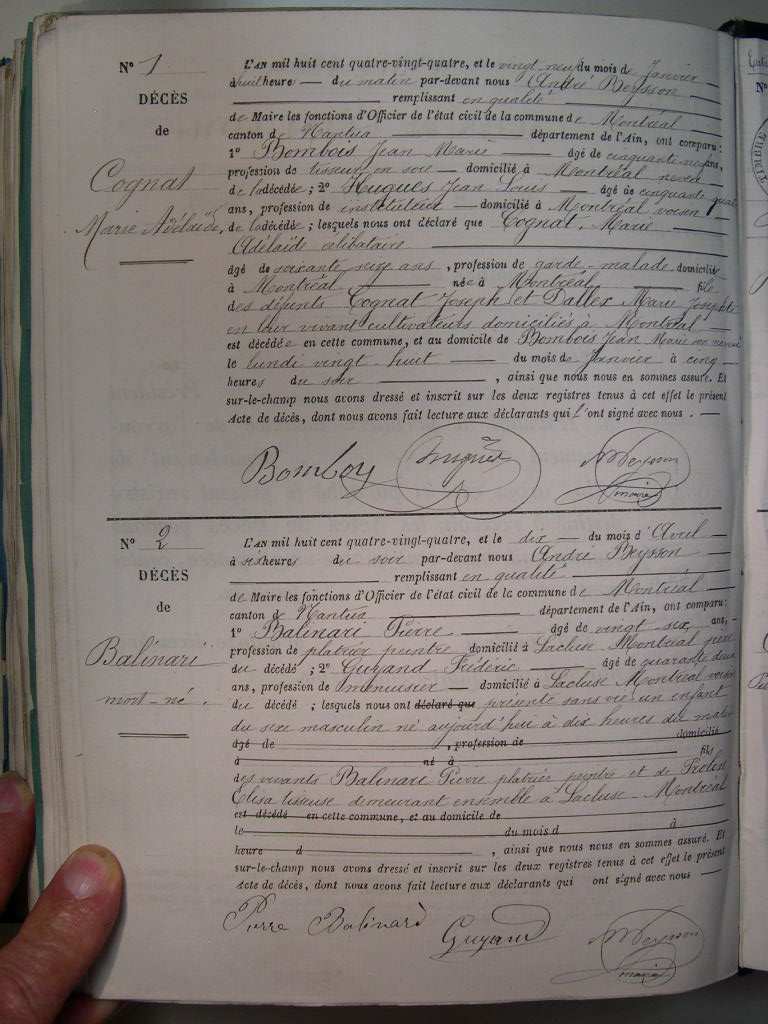 N° 1
DÉCÈS
de
Cognat
Marie Adélaïde
L'AN mil huit cent quatre-vingt-quatre, et le vingt neuf du mois de Janvier
à huit heure — du matin par-devant nous André Beysson
remplissant en qualité
de Maire les fonctions d'Officier de l'état civil de la commune de Montréal
canton de Nantua département de l'Ain, ont comparu:
1° Bombois Jean Marie âgé de cinquante ans,
profession de tisseur en soie — domicilié à Montréal neveu
de la décédée ; 2° Hugues Jean Louis — âgé de cinquante
ans, profession de instituteur — domicilié à Montréal voisin
de la décédée ; lesquels nous ont déclaré que Cognat, Marie
Adélaïde célibataire
âgé de soixante ans, profession de garde-malade domicilié
à Montréal née à Montréal fille
des défunts Cognat Joseph et Marie Josephte
en leur vivant cultivateurs domiciliés à Montréal —
est décédée en cette commune, et au domicile de Bombois Jean Marie son neveu
le lundi vingt-huit — du mois de Janvier à cinq
heures du soir , ainsi que nous nous en sommes assuré. Et
sur-le-champ nous avons dressé et inscrit sur les deux registres tenus à cet effet le présent
Acte de décès, dont nous avons fait lecture aux déclarants qui l'ont signé avec nous . —
Bomboy Hugues ABeysson
maire
N° 2
DÉCÈS
de
Balinari
mort-né.
L'AN mil huit cent quatre-vingt-quatre, et le dix — du mois d'Avril —
à six heures du soir par-devant nous André Beysson —
remplissant en qualité
de Maire les fonctions d'Officier de l'état civil de la commune de Montréal
canton de Nantua département de l'Ain, ont comparu:
1° Balinari Pierre — âgé de vingt six ans, -
profession de platrier peintre domicilié à Lacluse Montréal père
du décédé ; 2° Guyand Frédéric — âgé de quarante deux
ans, profession de menuisier — domicilié à Lacluse Montréal voisin
du décédé ; lesquels nous ont déclaré que présenté sans vie un enfant
du sexe masculin né aujourd'hui à dix heures du matin
âgé de , profession de domicilié
à né à fils
des vivants Balinari Pierre platrier peintre et de
Elisa tisseuse demeurant ensemble à Lacluse-Montréal
est décédé en cette commune, et au domicile de
le du mois d à
heure d , ainsi que nous nous en sommes assuré. Et
sur-le-champ nous avons dressé et inscrit sur les deux registres tenus à cet effet le présent
Acte de décès, dont nous avons fait lecture aux déclarants qui ont signé avec nous —
Pierre Balinari Guyand ABeysson
maire
N°
TIMBRE